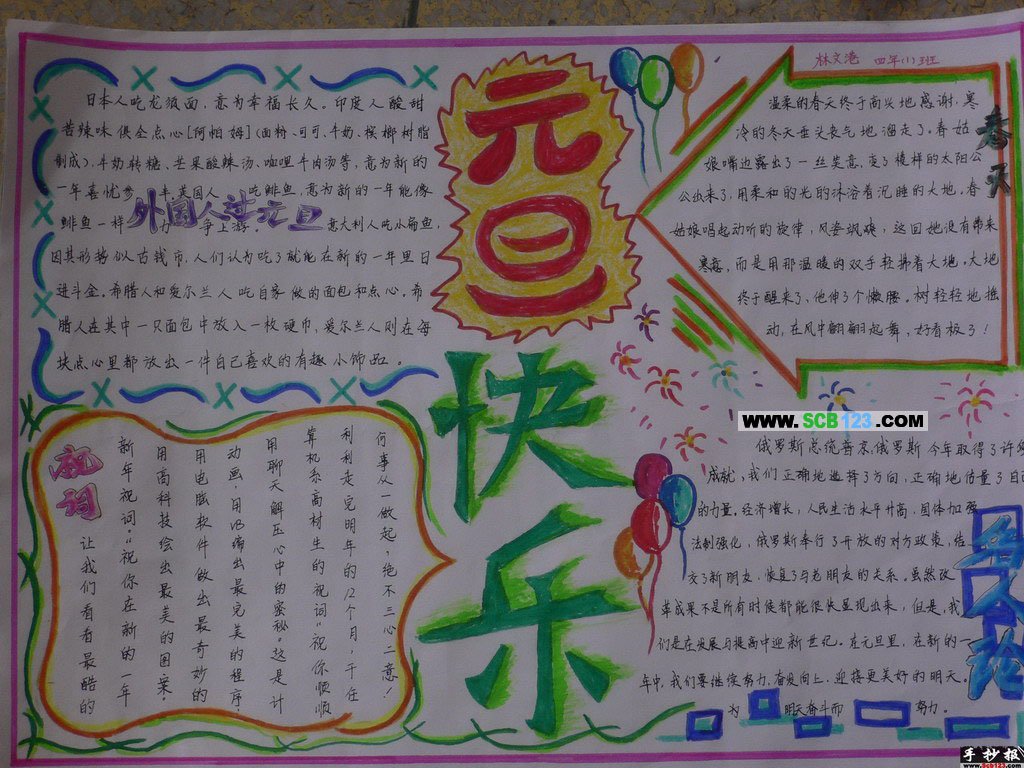 林文港 四年(1)班
元旦
快乐
日本人吃龙须面,意为幸福长久。印度人酸甜
苦辣味俱全点心[阿帕姆](面粉、可可、牛奶、槟榔树脂
制成)、牛奶转糖、芒果酸辣汤、咖哩牛肉汤等,意为新的
一年喜忧参半 美国人 吃鲱鱼,意为新的一年能像
鲱鱼一样 力争上游。 意大利人吃小扁鱼,
外国人过元旦
因其形势似古钱币,人们认为吃了就能在新的一年里日
进斗金。希腊人和爱尔兰人吃自家做的面包和点心。希
腊人在其中一只面包中放入一枚硬币,爱尔兰人则在每
块点心里都放出一件自己喜欢的有趣小饰品。
春天
温柔的春天终于高兴地感谢,寒
冷的冬天垂头丧气地溜走了。春姑
娘嘴边露出了一丝笑意,
公出来了,用柔和的光的沐浴着沉睡的大地。春
姑娘唱起动听的旋律,风姿飒爽,这回她没有带来
寒意,而是用那温暖的双手轻拂着大地。大地
终于醒来了,他伸了个懒腰。树轻轻地摇
动,在风中翩翩起舞,好看极了!
WWW.SCB123.COM
祝词
何事从一做起,绝不三心二意!
利利走完明年的12个月,千任
算机系高材生的祝词“祝你顺顺
用聊天解压心中的密秘。这是计
动画,用VB编出最完美的程序
用电脑软件做出最奇妙的
用高科技绘出最美的图案。
新年祝词:“祝你在新的一年
让我们看看最酷的
名人论
俄罗斯总统普京:俄罗斯今年取得了许多
成就、我们正确地选择了方向,正确地估量了自己
的力量。经济增长,人民生活水平升高,团体加强
法制强化,俄罗斯奉行了开放的对方政策,结
交了新朋友,恢复了与老朋友的关系。虽然改
革成果不是所有时候都能很快显现出来,但是,我
们是在发展与提高中迎新世纪。在元旦里,在新的一
年中,我们要继续努力,奋发向上,迎接更美好的明天。
为 明天奋斗而 努力。
手抄报
WWW.SCB123.COM